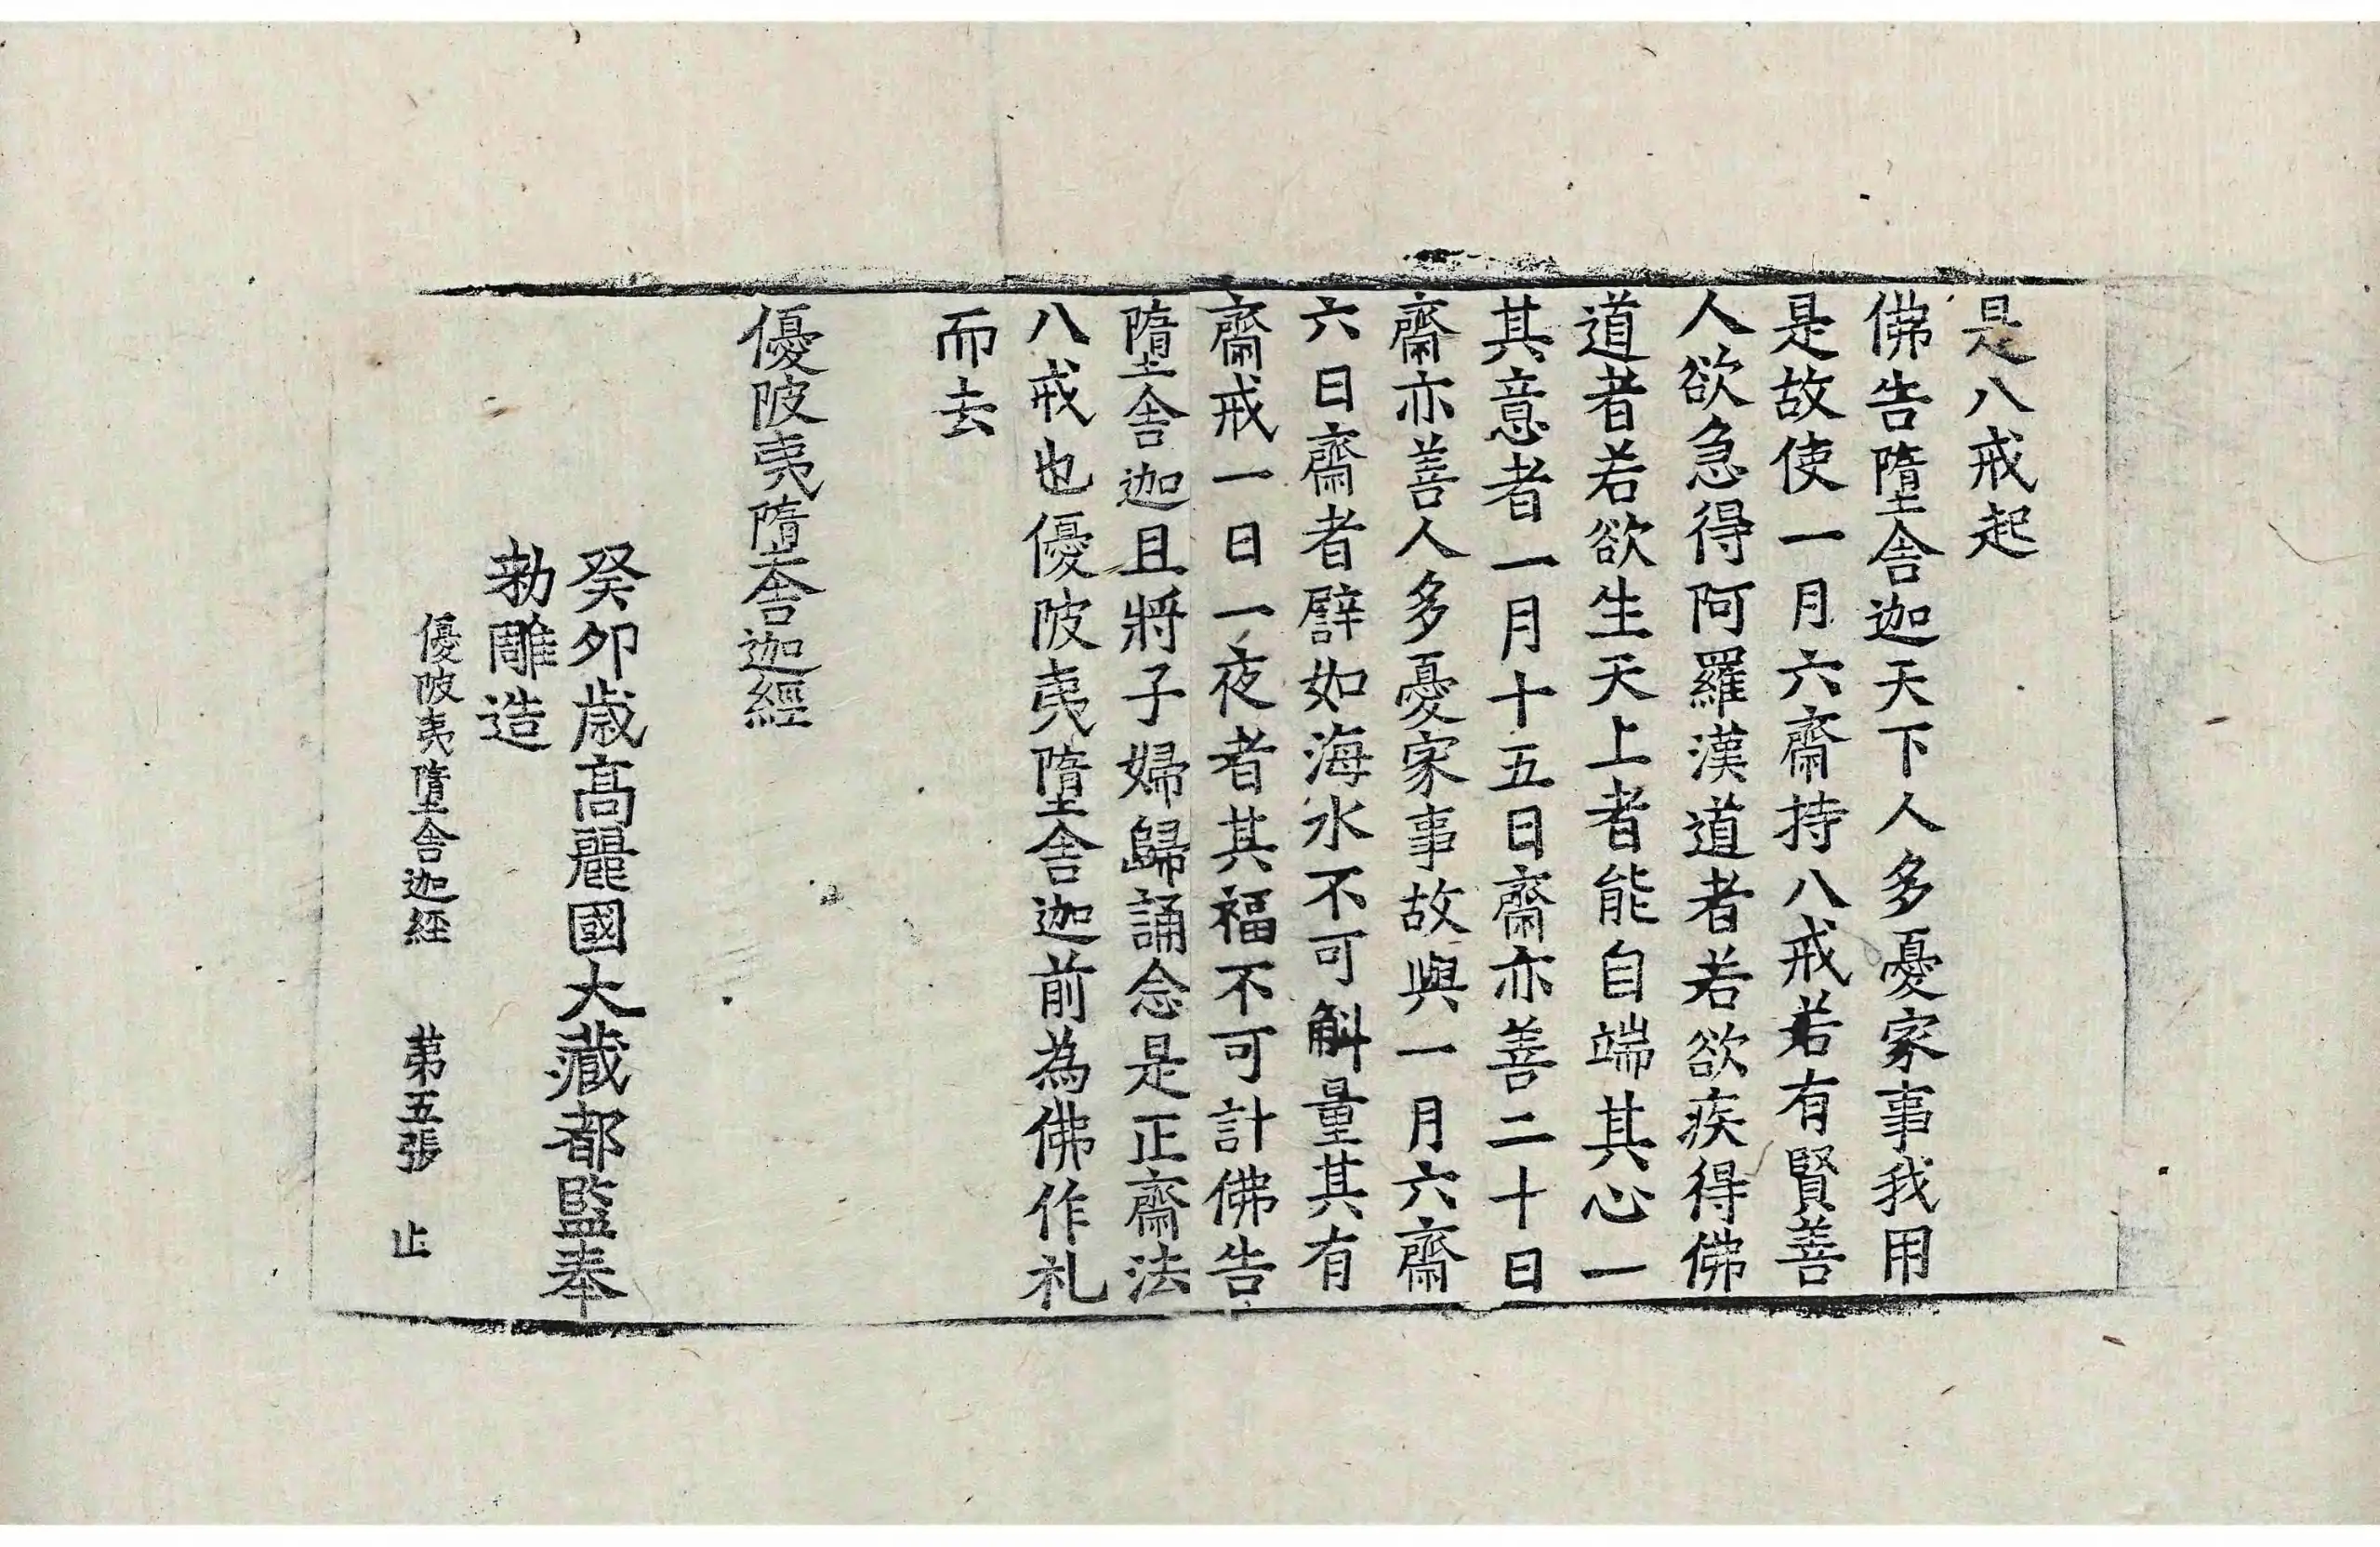 是八戒起
佛告墮舍迦天下人多憂家事我用
是故使一月六齋持八戒若有賢善
人欲急得阿羅漢道者若欲疾得佛
道者若欲生天上者能自端其心一
其意者一月十五日齋亦善二十日
齋亦善人多憂家事故與一月六齋
六日齋者譬如海水不可斛量其有
齋戒一日一夜者其福不可計佛告
墮舍迦且將子婦歸誦念是正齋法
八戒也優陂夷墮舍迦前為佛作礼
而去
優陂夷墮舍迦經
癸卯歲高麗國大藏都監奉
勑雕造
優陂夷墮舍迦經 苐五張 止